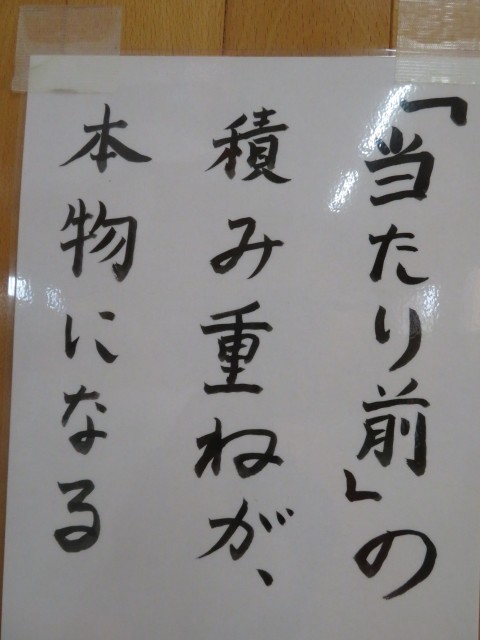 「当たり前」の
積み重ねが、
本物になる